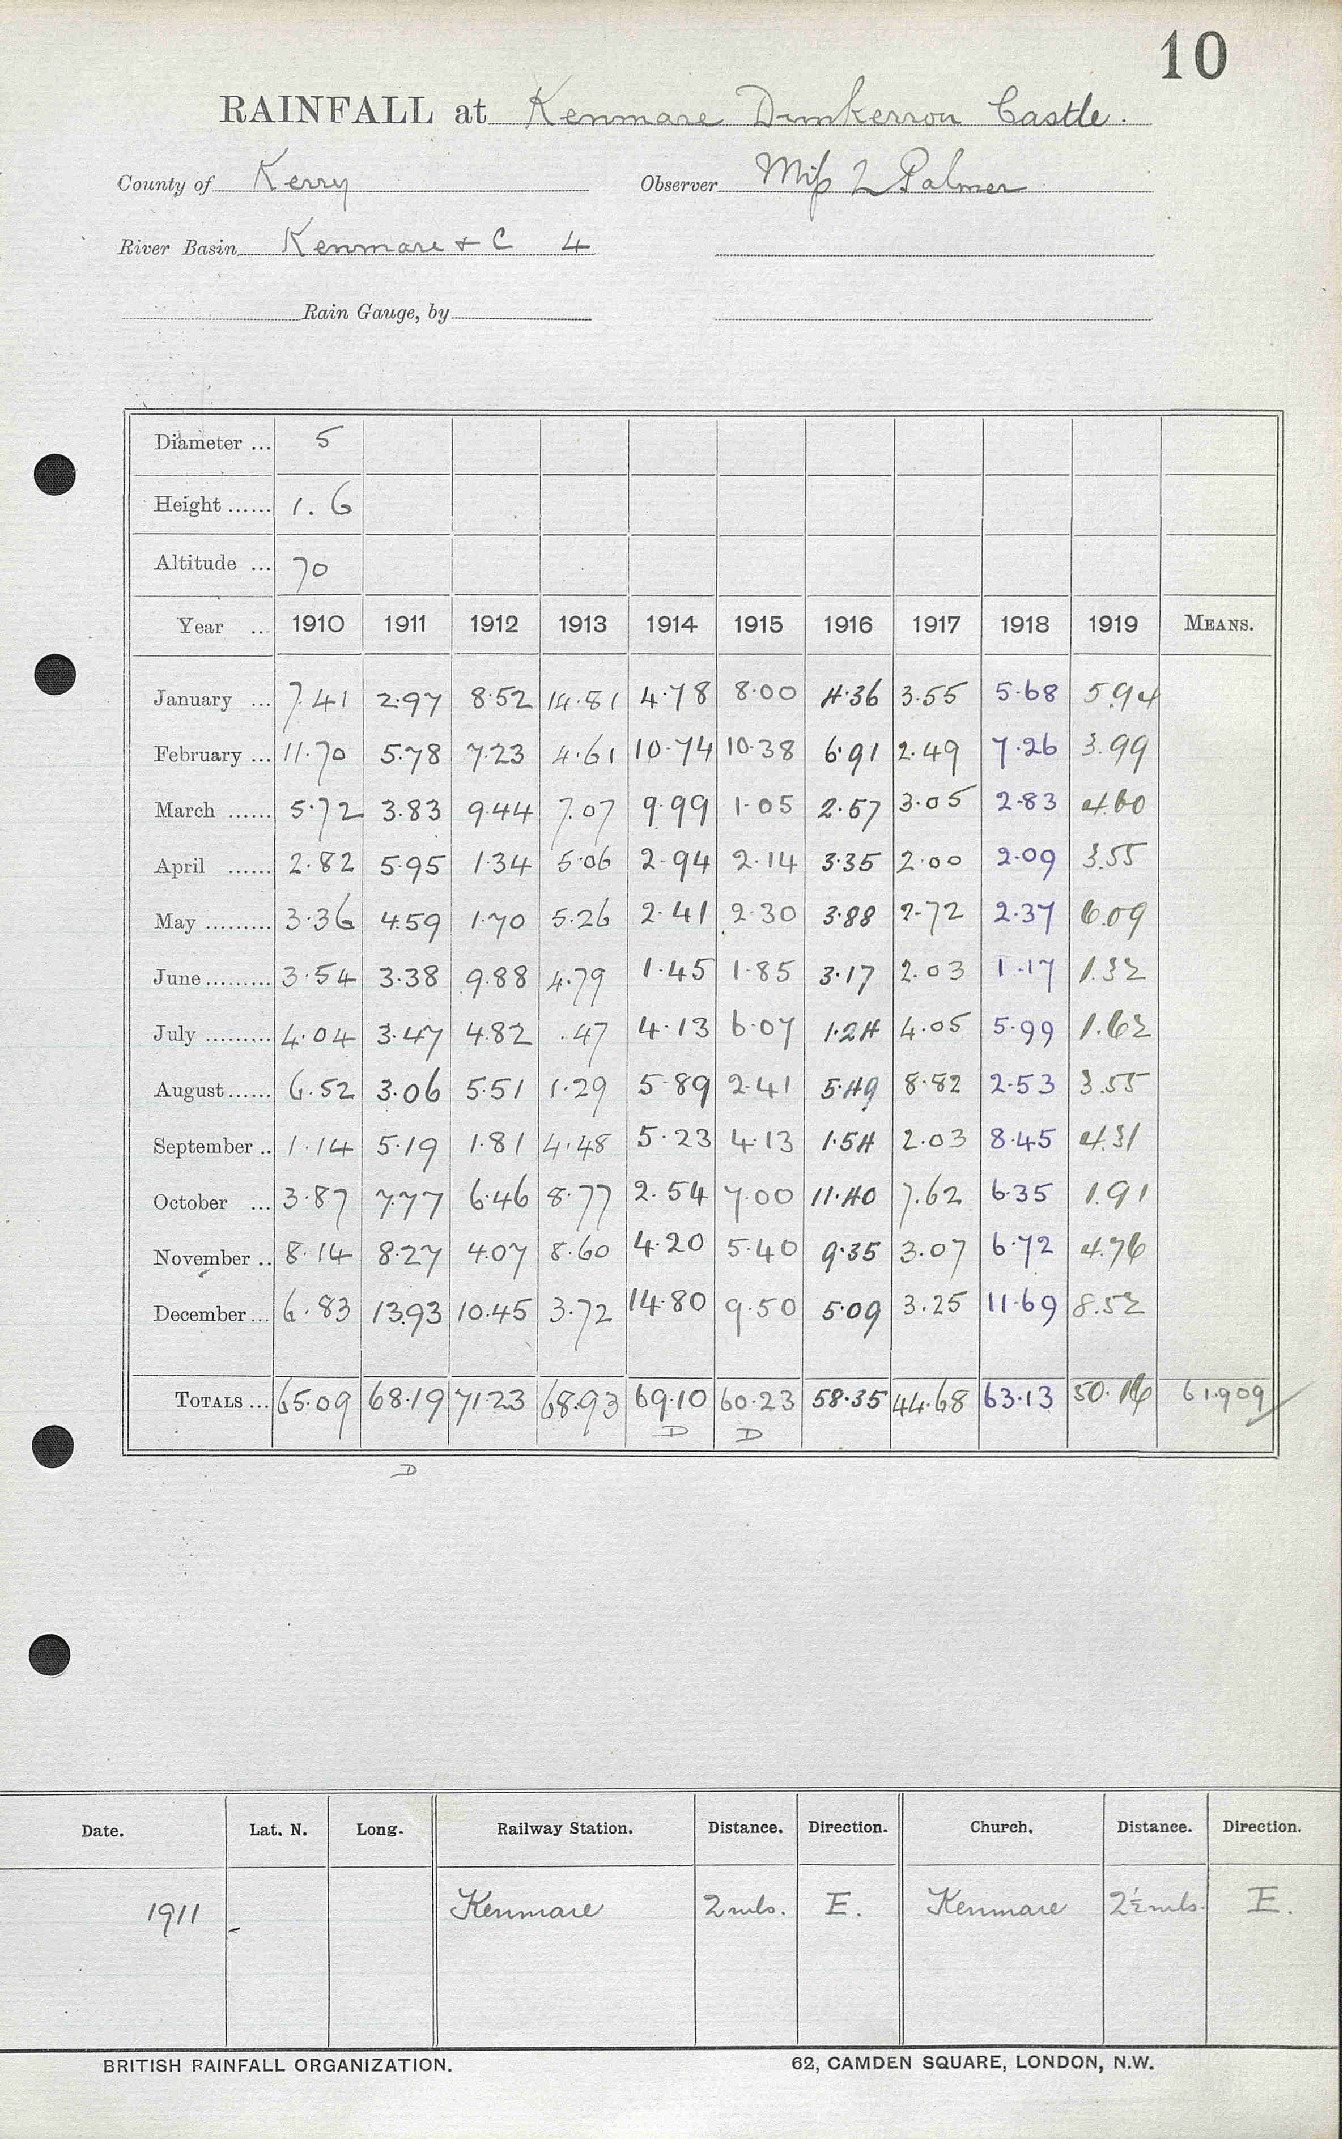 10
RAINFALL at Kenmare Dunkerron Castle.
County of Kerry Observer Miss L Palmer
River Basin Kenmare + C 4
Rain Gauge, by
Diameter ... 5
Height ...... 1.6
Altitude ... 70
Year ... 1910 1911 1912 1913 1914 1915 1916 1917 1918 1919 MEANS.
January ... 7.41 2.97 8.52 14.81 4.78 8.00 4.36 3.55 5.68 5.94
February ... 11.70 5.78 7.23 4.61 10.74 10.38 6.91 2.49 7.26 3.99
March ...... 5.72 3.83 9.44 7.07 9.99 1.05 2.57 3.05 2.83 4.60
April ...... 2.82 5.95 1.34 5.06 2.94 2.14 3.35 2.00 2.09 3.55
May ......... 3.36 4.59 1.70 5.26 2.41 2.30 3.88 2.72 2.37 6.09
June ......... 3.54 3.38 9.88 4.79 1.45 1.85 3.17 2.03 1.17 1.32
July ......... 4.04 3.47 4.82 .47 4.13 6.07 1.24 4.05 5.99 1.62
August ...... 6.52 3.06 5.51 1.29 5.89 2.41 5.49 8.82 2.53 3.55
September .. 1.14 5.19 1.81 4.48 5.23 4.13 1.54 2.03 8.45 4.31
October ... 3.87 7.77 6.46 8.77 2.54 7.00 11.40 7.62 6.35 1.91
November .. 8.14 8.27 4.07 8.60 4.20 5.40 9.35 3.07 6.72 4.76
December ... 6.83 13.93 10.45 3.72 14.80 9.50 5.09 3.25 11.69 8.52
TOTALS ... 65.09 68.19 71.23 68.93 69.10 60.23 58.35 44.68 63.13 50.16 61.909
D D
D
Date. Lat. N. Long. Railway Station. Distance. Direction. Church. Distance. Direction.
1911 Kenmare 2 mls. E. Kenmare 2½ mls. E.
BRITISH RAINFALL ORGANIZATION. 62, CAMDEN SQUARE, LONDON, N.W.